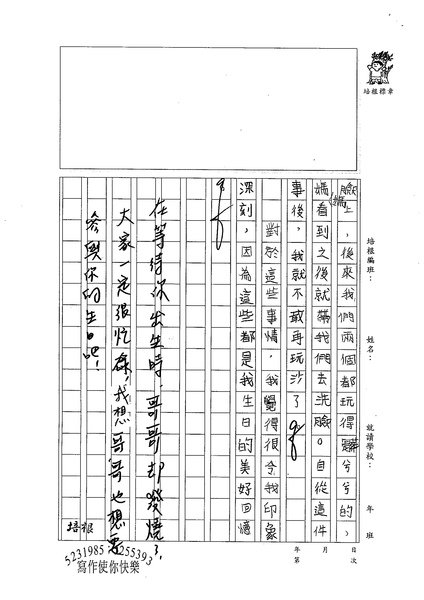 培根標章
培根編班：
姓名：
就讀學校：
年
班
臉上，後來我們兩個都玩得髒兮兮的，媽
媽看到之後就帶我們去洗臉。自從這件
事後，我就不敢再玩沙了。
對於這些事情，我覺得很令我印象
深刻，因為這些都是我生日的美好回憶
。
在等待你出生時，哥哥卻發燒了，
大家一定很忙碌！我想哥哥也想要
參與你的生日吧！
年
月
日
第
次
培根
5231985
5255393
寫作使你快樂